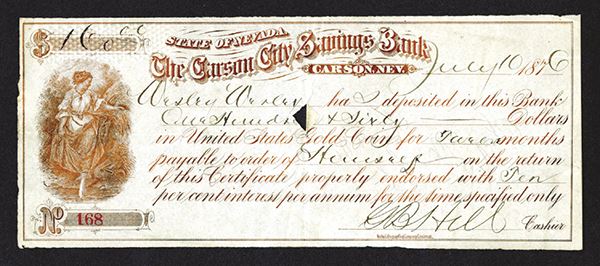 $ 160 00
STATE OF NEVADA.
The Carson City Savings Bank
CARSON, NEV. July 10 1876
Wesley Worley has deposited in this Bank
One Hundr & Sixty Dollars
in United States Gold Coin for months
payable to order of Himself on the return
of this Certificate properly endorsed with Ten
per cent interest per annum for the time specified only
Hill Cashier
No. 168